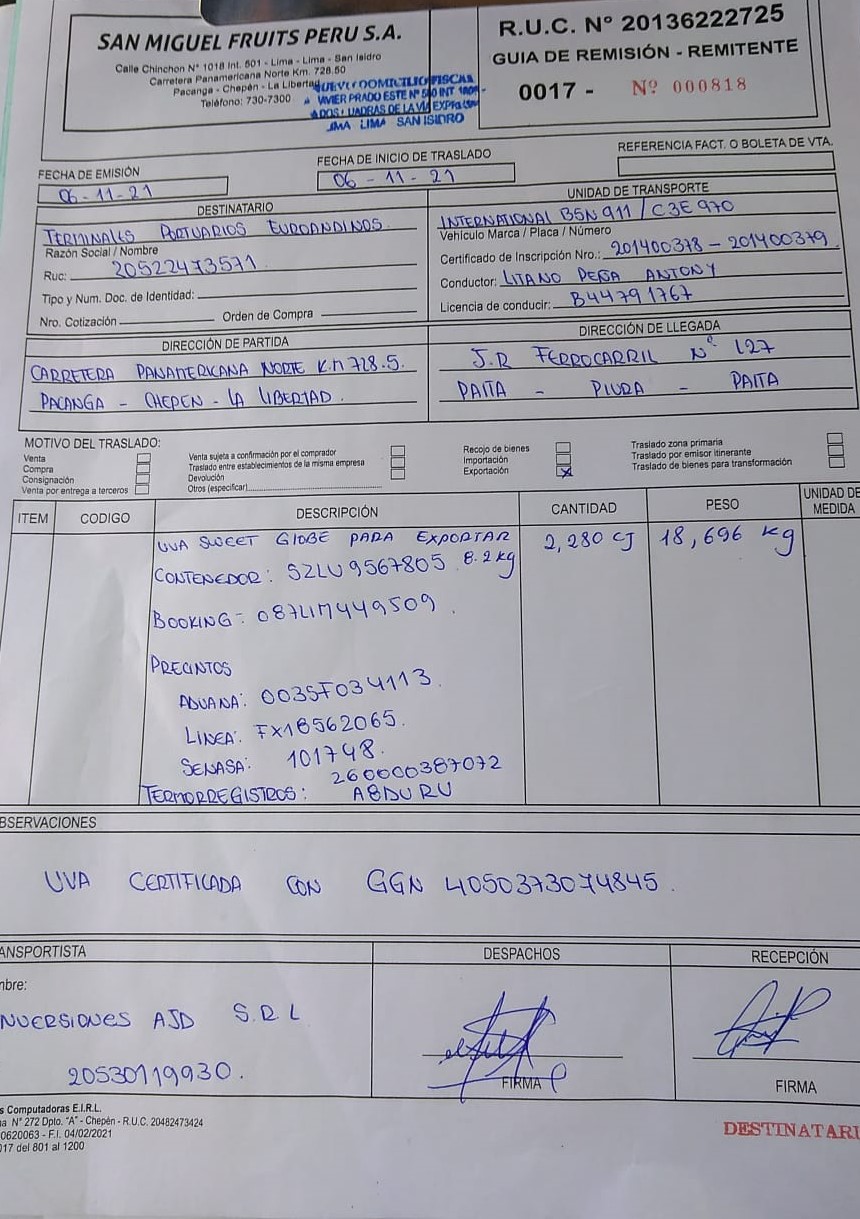 SAN MIGUEL FRUITS PERU S.A.
Calle Chinchon N° 1018 Int. 501 - Lima - Lima - San Isidro
Carretera Panamericana Norte Km. 728.50
Pacanga - Chepén - La Libertad
Teléfono: 730-7300
NUEVO DOMICILIO FISCAL
JAVIER PRADO ESTE N° INT
CUADRAS DE LA VIA EXPRESA
LIMA LIMA SAN ISIDRO
R.U.C. N° 20136222725
GUIA DE REMISIÓN - REMITENTE
0017 - Nº 000818
FECHA DE EMISIÓN
06-11-21
FECHA DE INICIO DE TRASLADO
06-11-21
REFERENCIA FACT. O BOLETA DE VTA.
DESTINATARIO
TERMINALES PORTUARIOS EUROANDINOS
Razón Social / Nombre
Ruc: 20522473571
Tipo y Num. Doc. de Identidad:
Nro. Cotización Orden de Compra
UNIDAD DE TRANSPORTE
INTERNATIONAL B5N 911 / C3E 970
Vehículo Marca / Placa / Número
Certificado de Inscripción Nro.: 201400378 - 201400379
Conductor: LITANO PEÑA ANTONY
Licencia de conducir: B44791767
DIRECCIÓN DE PARTIDA
CARRETERA PANAMERICANA NORTE K.M 728.5.
PACANGA - CHEPEN - LA LIBERTAD.
DIRECCIÓN DE LLEGADA
J.R FERROCARRIL N° 127
PAITA - PIURA - PAITA
MOTIVO DEL TRASLADO:
Venta
Compra
Consignación
Venta por entrega a terceros
Venta sujeta a confirmación por el comprador
Traslado entre establecimientos de la misma empresa
Devolución
Otros (especificar)
Recojo de bienes
Importación
Exportación X
Traslado zona primaria
Traslado por emisor itinerante
Traslado de bienes para transformación
ITEM CODIGO DESCRIPCIÓN CANTIDAD PESO UNIDAD DE MEDIDA
UVA SWEET GlOBE PARA EXPORTAR 2,280 CJ 18,696 kg
CONTENEDOR: SZLU 9567805 8.2kg
BOOKING: 087LIM449509.
PRECINTOS
ADUANA: 0035F034113.
LINEA: FX18562065.
SENASA: 101748.
260000387072
TERMORREGISTROS: A8DURU
BSERVACIONES
UVA CERTIFICADA CON GGN 4050373074845.
ANSPORTISTA
mbre:
NVERSIONES AJD S.R.L
20530119930.
DESPACHOS
FIRMA
RECEPCIÓN
FIRMA
s Computadoras E.I.R.L.
a N° 272 Dpto. "A" - Chepén - R.U.C. 20482473424
0620063 - F.I. 04/02/2021
017 del 801 al 1200
DESTINATARI